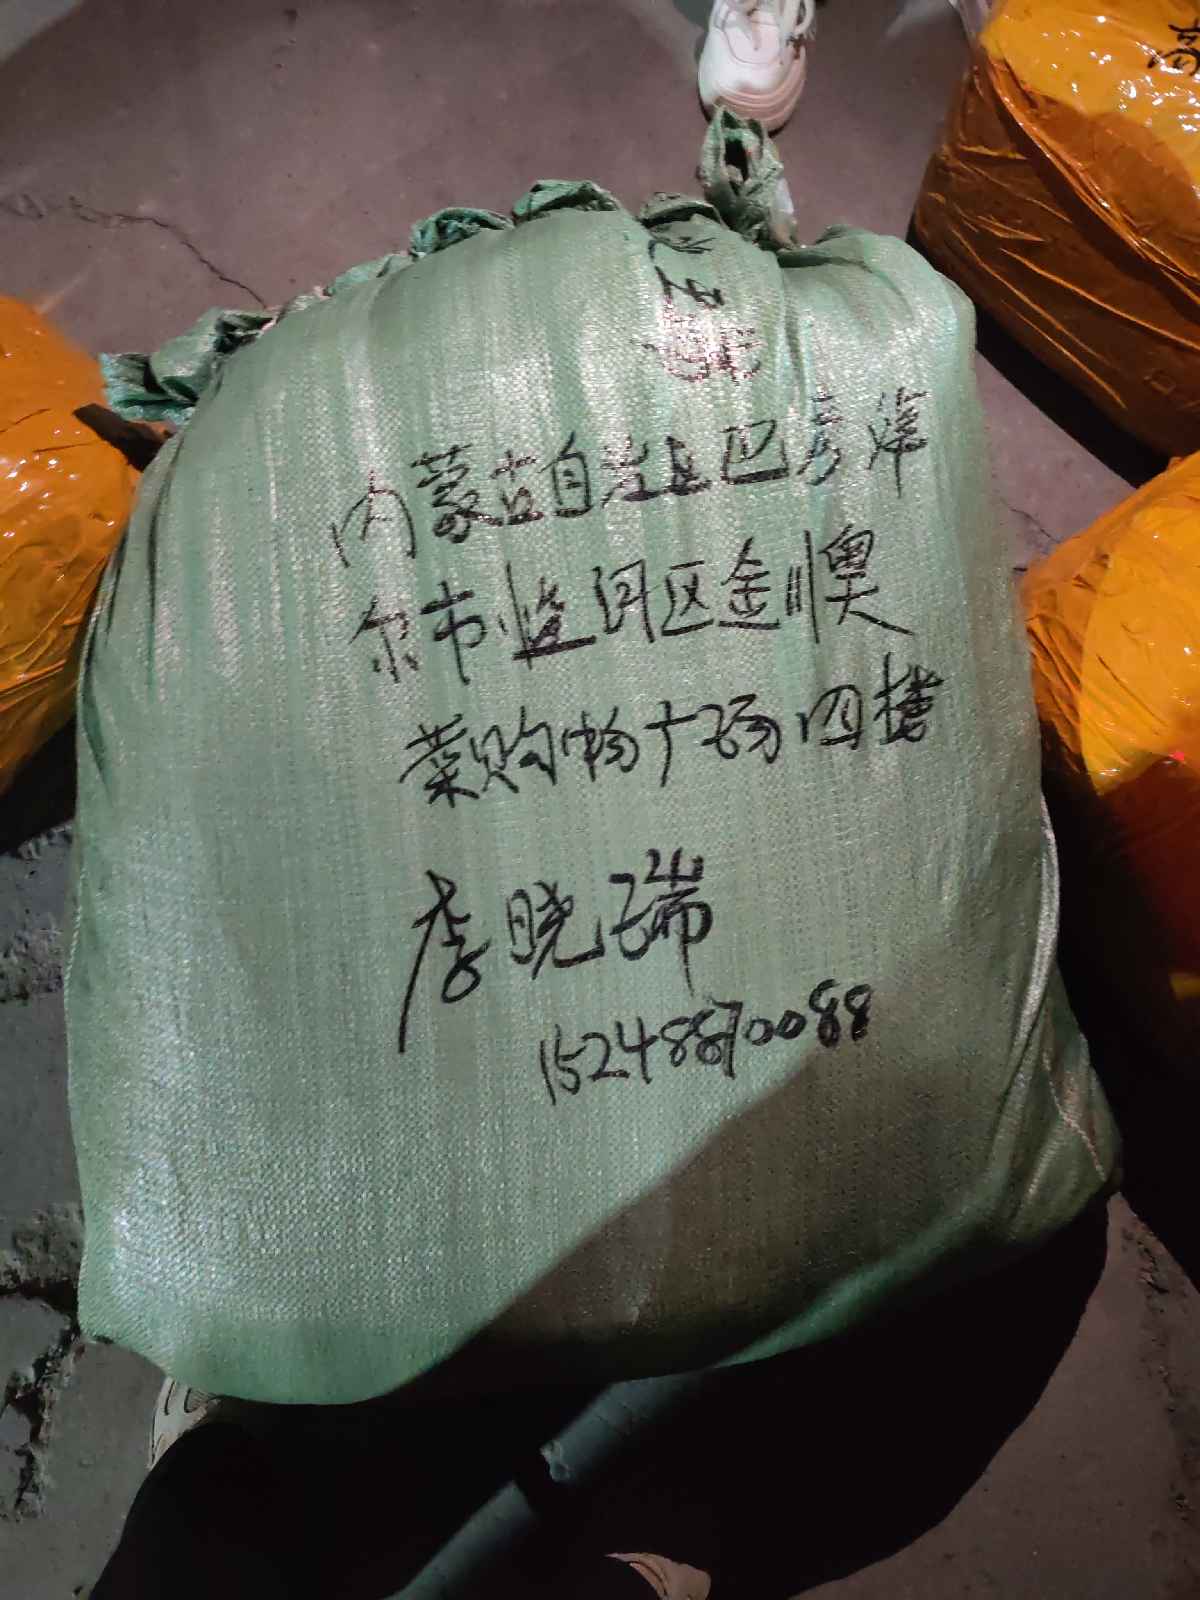 内蒙古自治区巴彦淖
尔市临河区金澳
莱购物广场四楼
李晓瑞
15248870088